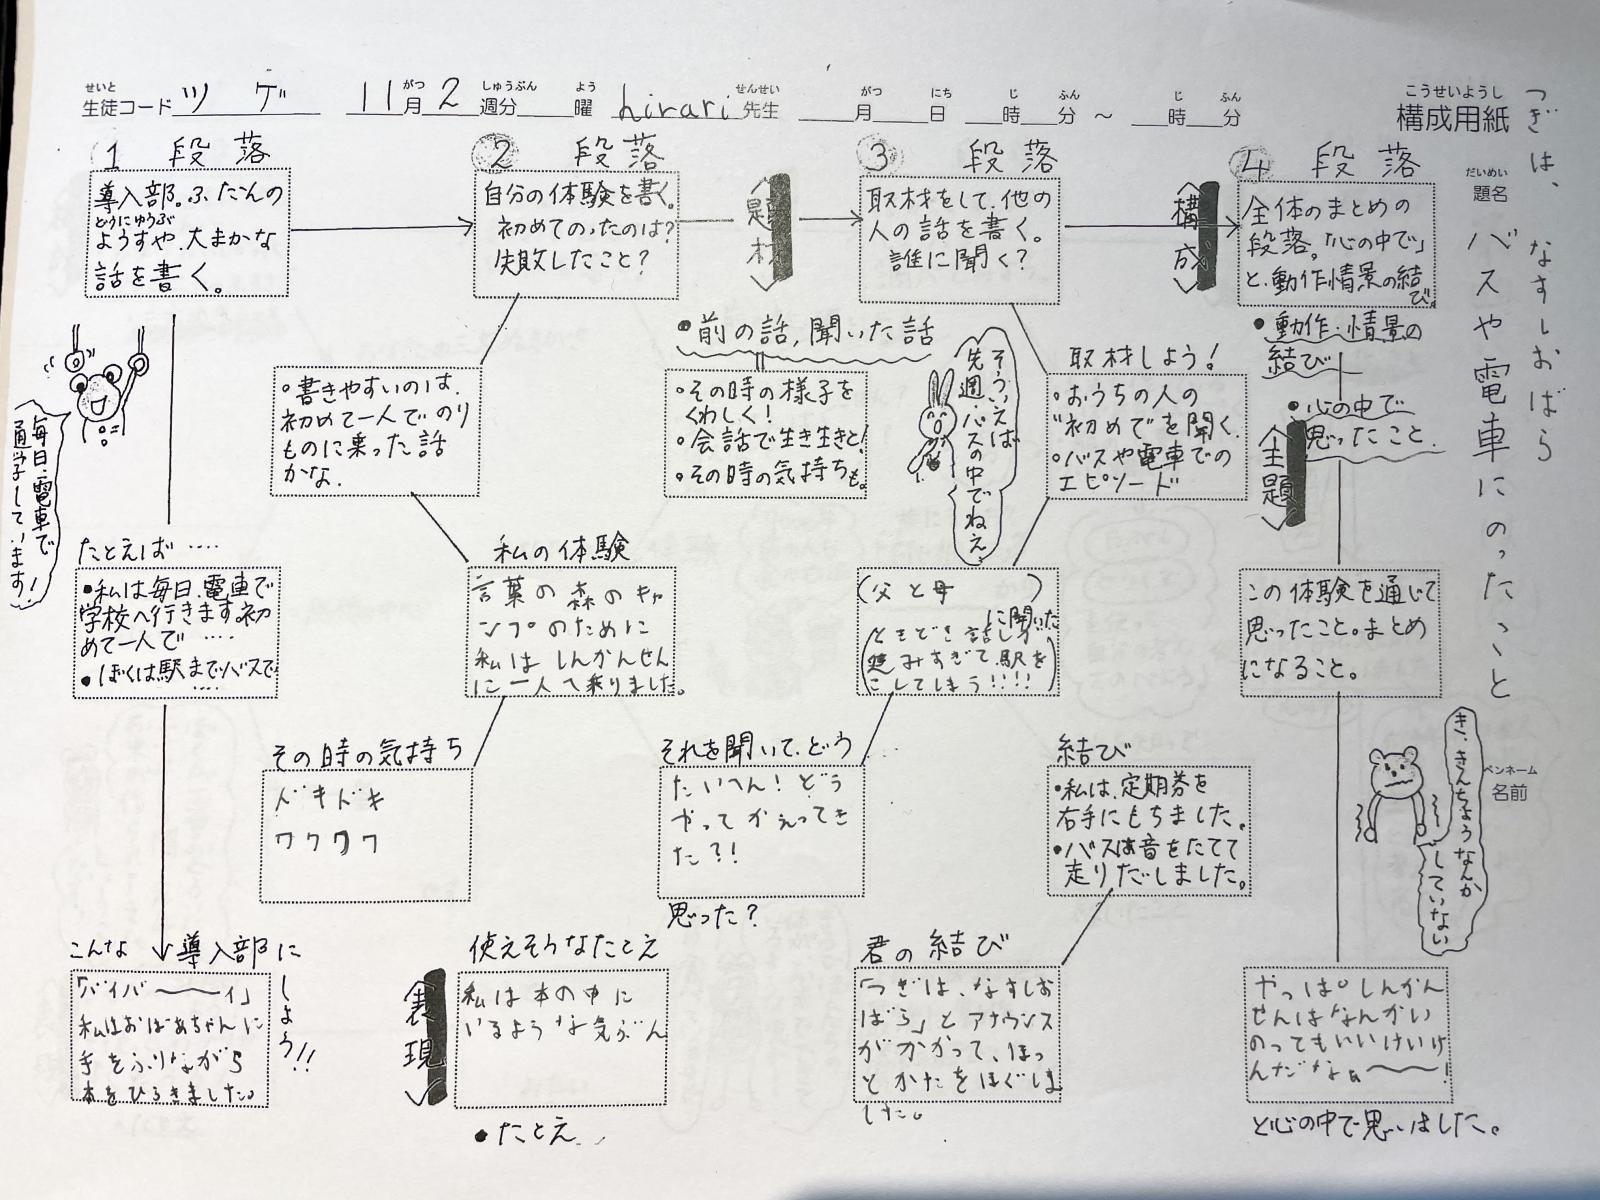 せいと がつ しゅうぶん よう せんせい がつ にち じ ふん じ ふん こうせいようし
生徒コード ツゲ 11月2週分 曜 hirari先生 月 日 時 分 ～ 時 分 構成用紙
だいめい
題名
バスや電車にのったこと
つぎは、なすしおばら
ペンネーム
名前
1 段落
導入部。ふだんの
どうにゅうぶ
ようすや、大まかな
話を書く。
2 段落
自分の体験を書く。
初めてのったのは?
失敗したこと?
題材
3 段落
取材をして、他の
人の話を書く。
誰に聞く?
構成
4 段落
全体のまとめの
段落。「心の中で」
と、動作情景の結
び。
毎日、電車で
通学しています!
・書きやすいのは、
初めて一人でのり
ものに乗った話
かな。
●前の話,聞いた話
・その時の様子を
くわしく!
・会話で生き生きと!
・その時の気持ちも。
そういえば
先週、バスの中でねえ
取材しよう!
・おうちの人の
"初めて"を聞く。
・バスや電車での
エピソード
●動作・情景の
結び
●心の中で
思ったこと。
主題
たとえば ‥‥
●私は毎日、電車で
学校へ行きます。初
めて一人で ‥‥
●ぼくは駅までバスで
‥‥
私の体験
言葉の森のキャ
ンプのために
私はしんかんせん
に一人で乗りました。
(父と母)
に聞いた
ときどき話しが
進みすぎて、駅を
こしてしまう!!!!
この体験を通じて
思ったこと。まとめ
になること。
その時の気持ち
ドキドキ
ワクワク
それを聞いて、どう
たいへん! どう
やってかえってき
た?!
思った?
結び
・私は、定期券を
右手にもちました。
・バスは音をたてて
走りだしました。
き、きんちょうなんか
していない
こんな 導入部に
しよう!!
「バイバ〜〜イ」
私はおばあちゃんに
手をふりながら
本をひらきました。
表現
使えそうなたとえ
私は本の中に
いるような気ぶん
●たとえ
君の結び
「つぎは、なすしお
ばら」とアナウンス
がかかって、ほっ
とかたをほぐしま
した。
やっぱりしんかん
せんはなんかい
のってもいいけいけ
んだなぁ〜〜!
と心の中で思いました。